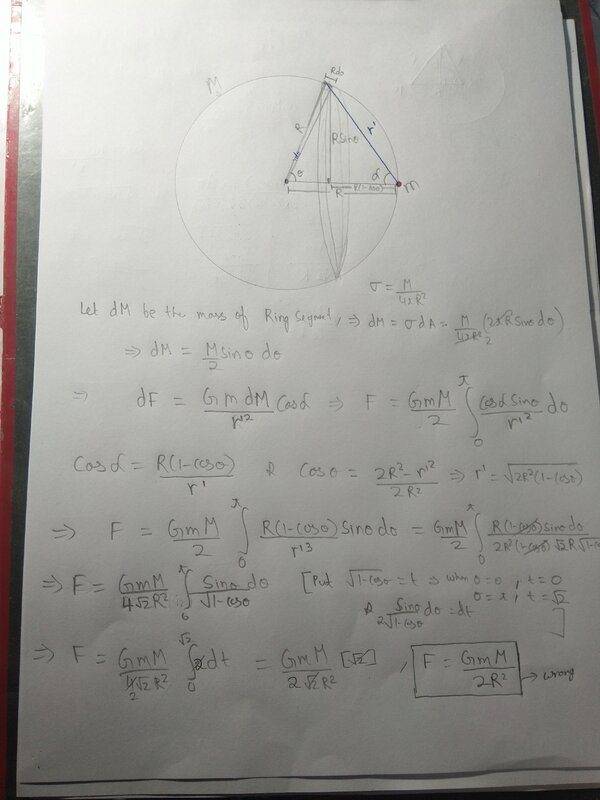 Rdθ
M
R
r'
Rsinθ
θ
α
m
R(1-cosθ)
R
σ = M/4πR²
Let dM be the mass of Ring Segment, ⇒ dM = σdA = M/4πR² (2πR²sinθdθ)
2
⇒ dM = M/2 sinθ dθ
⇒ dF = G m dM/r'² Cosα ⇒ F = GmM/2 ∫₀^π cosα sinθ/r'² dθ
Cosα = R(1-cosθ)/r' & Cosθ = 2R²-r'²/2R² ⇒ r' = √2R²(1-cosθ)
⇒ F = GmM/2 ∫₀^π R(1-cosθ)Sinθdθ/r'³ = GmM/2 ∫₀^π R(1-cosθ)sinθdθ/2R²(1-cosθ)√2R√1-cos
⇒ F = GmM/4√2R² ∫₀^π Sinθdθ/√1-cosθ [Put √1-cosθ = t ⇒ when θ=0, t=0
θ=π, t=√2
& Sinθ/2√1-cosθ dθ = dt ]
⇒ F = GmM/4√2R² ∫₀^√2 2dt = GmM/2√2R² [√2], F = GmM/2R² → wrong
2